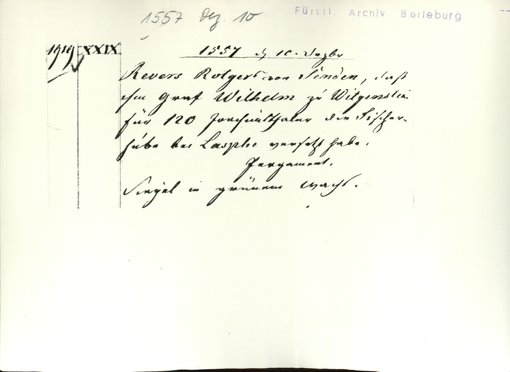 1557 Dez. 10
Fürstl. Archiv Berleburg
1919 XXIX. 1557 10. Dezbr
Revers Rotgers von Dinden, daß
ihm Graf Wilhelm zu Witgenstein
für 120 Joachimthaler die Fischer-
hübe bei Laasphe versetzt habe.
Pergament.
Siegel in grünem Wachs.